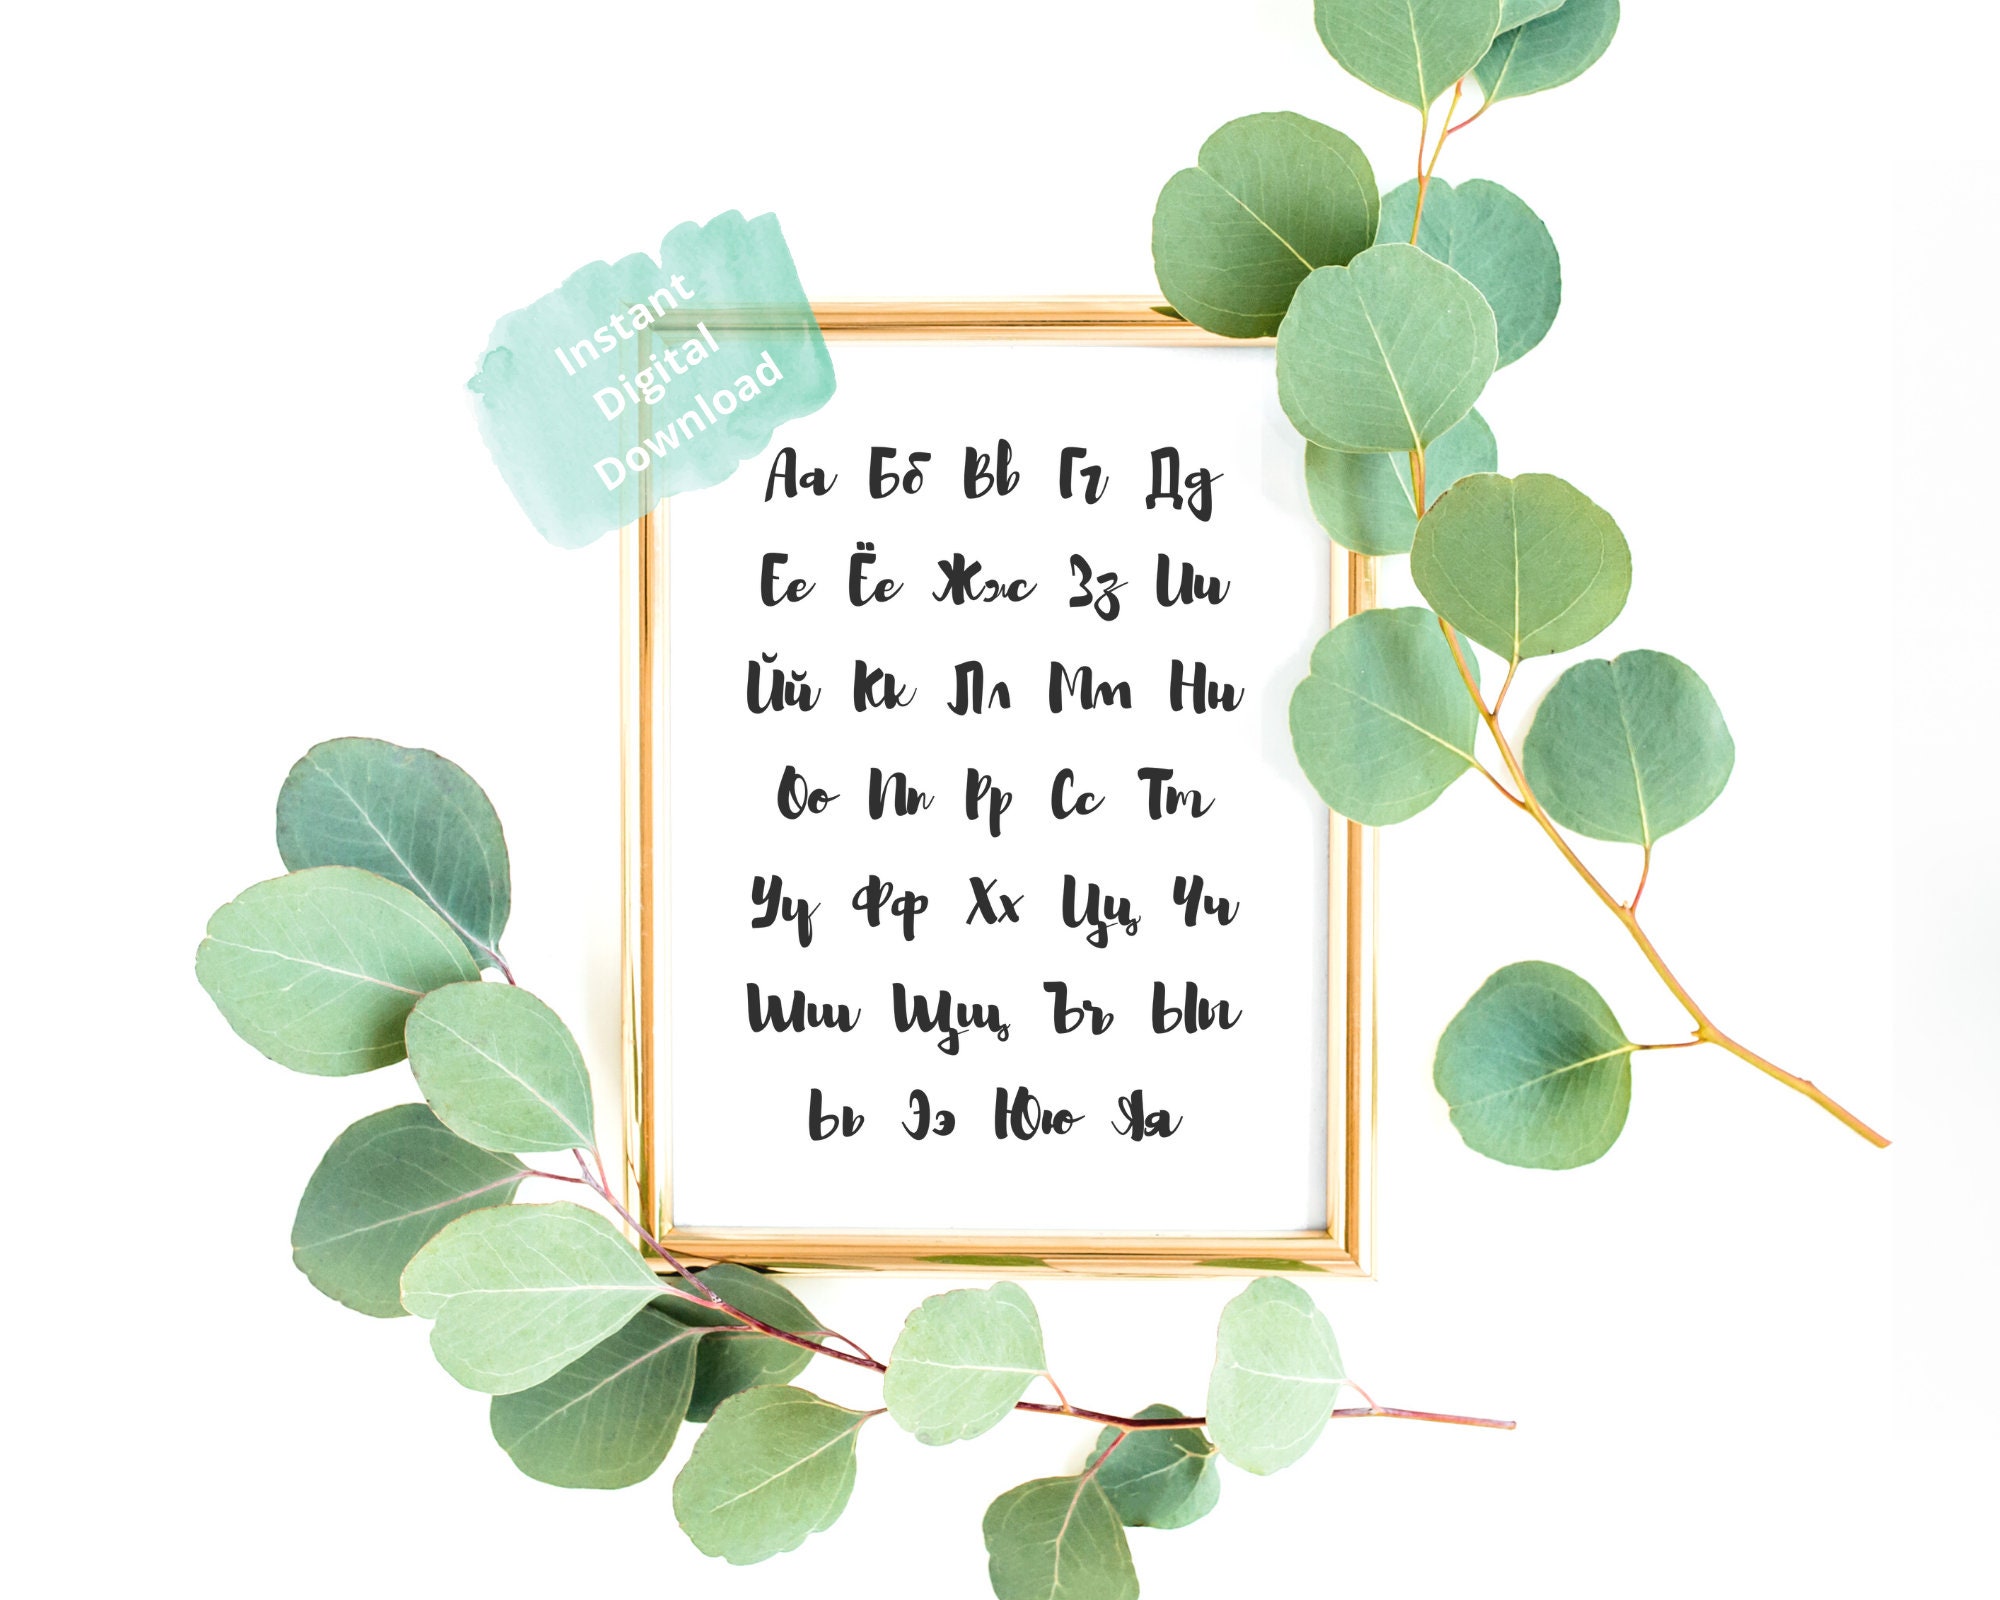 Instant
Digital
Download
Аа Бб Вв Гг Дд
Ее Ёё Жж Зз Ии
Йй Кк Лл Мм Нн
Оо Пп Рр Сс Тт
Уу Фф Хх Цц Чч
Шш Щщ Ъъ Ыы
Ьь Ээ Юю Яя